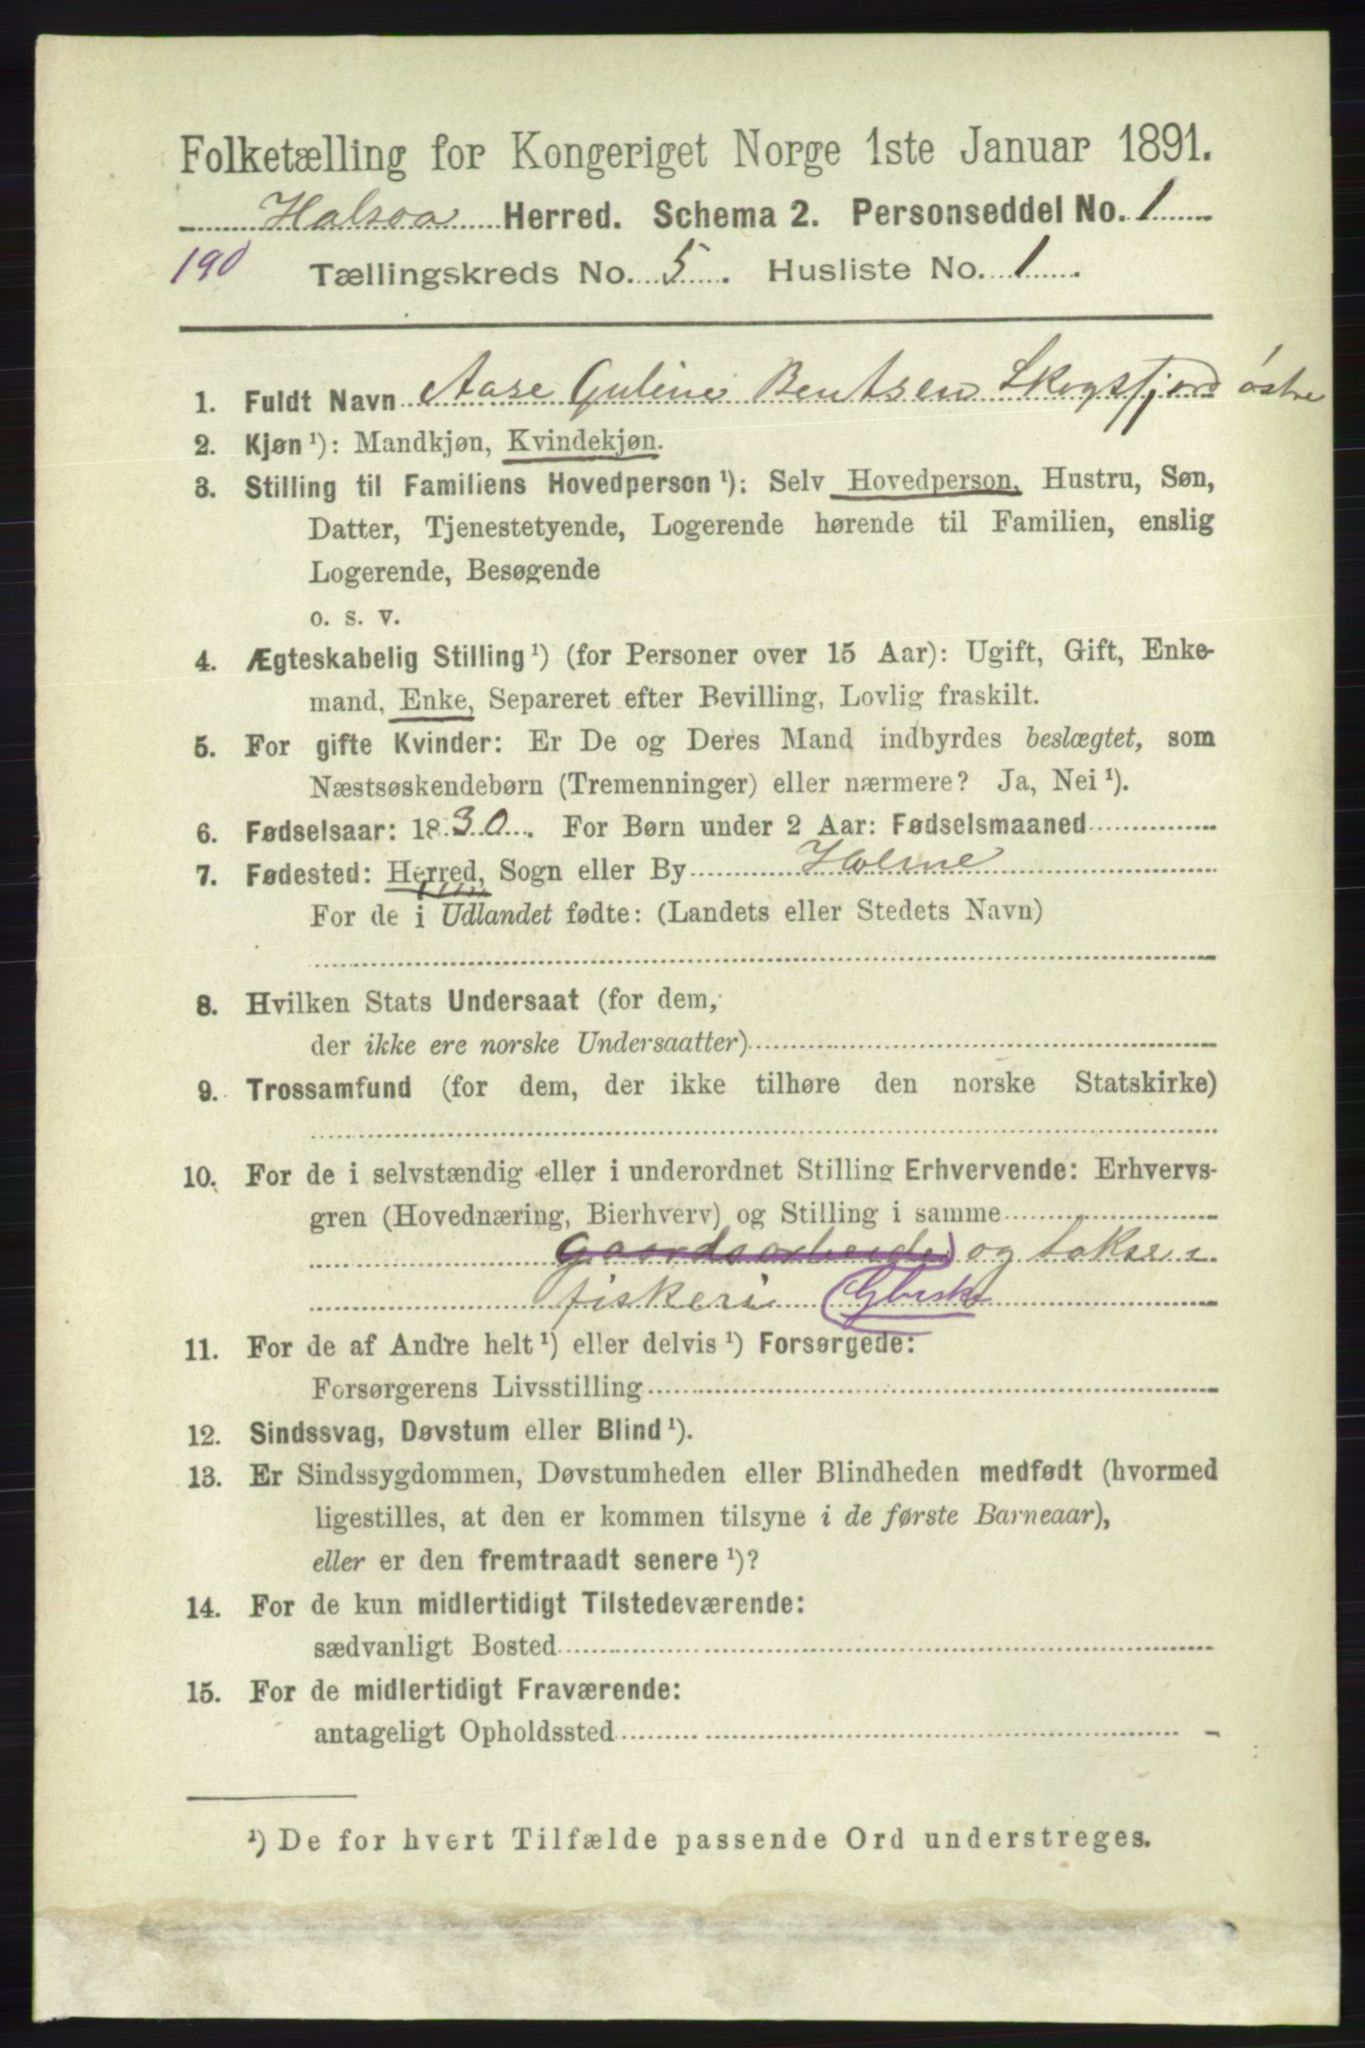 Folketælling for Kongeriget Norge 1ste Januar 1891.
Halsaa Herred. Schema 2. Personseddel No. 1
190 Tællingskreds No. 5. Husliste No. 1.
1. Fuldt Navn Aase Guline Bentsen Skogsfjord østre
2. Kjøn¹): Mandkjøn, Kvindekjøn.
3. Stilling til Familiens Hovedperson¹): Selv Hovedperson, Hustru, Søn,
Datter, Tjenestetyende, Logerende hørende til Familien, enslig
Logerende, Besøgende
o. s. v.
4. Ægteskabelig Stilling¹) (for Personer over 15 Aar): Ugift, Gift, Enke-
mand, Enke, Separeret efter Bevilling, Lovlig fraskilt.
5. For gifte Kvinder: Er De og Deres Mand indbyrdes beslægtet, som
Næstsøskendebørn (Tremenninger) eller nærmere? Ja, Nei¹).
6. Fødselsaar: 1830. For Børn under 2 Aar: Fødselsmaaned
7. Fødested: Herred, Sogn eller By Holme
For de i Udlandet fødte: (Landets eller Stedets Navn)
8. Hvilken Stats Undersaat (for dem,
der ikke ere norske Undersaatter)
9. Trossamfund (for dem, der ikke tilhøre den norske Statskirke)
10. For de i selvstændig eller i underordnet Stilling Erhvervende: Erhvervs-
gren (Hovednæring, Bierhverv) og Stilling i samme
gaardsarbeide og lakse
fiskeri Gbrsk
11. For de af Andre helt¹) eller delvis¹) Forsørgede:
Forsørgerens Livsstilling
12. Sindssvag, Døvstum eller Blind¹).
13. Er Sindssygdommen, Døvstumheden eller Blindheden medfødt (hvormed
ligestilles, at den er kommen tilsyne i de første Barneaar),
eller er den fremtraadt senere¹)?
14. For de kun midlertidigt Tilstedeværende:
sædvanligt Bosted
15. For de midlertidigt Fraværende:
antageligt Opholdssted
¹) De for hvert Tilfælde passende Ord understreges.